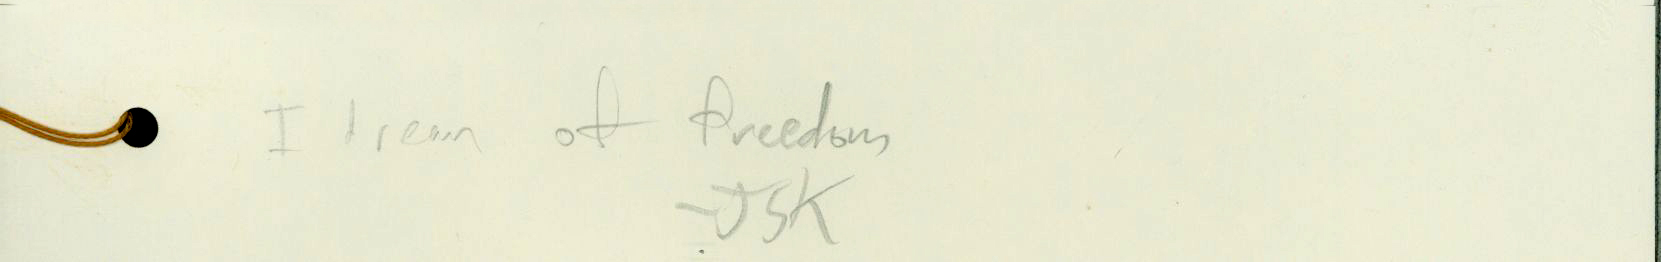 I dream of freedom
-JSK